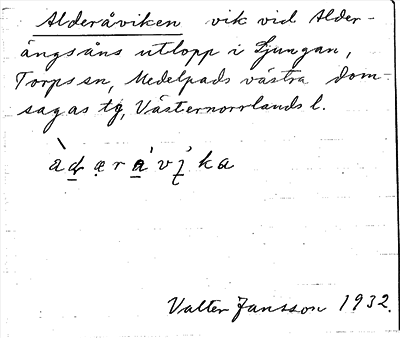 Alderåviken vik vid Alder-
ängsåns utlopp i Ljungan,
Torps sn, Medelpads västra dom-
sagas tg, Västernorrlands l.
àdærav̓ɩka
Valter Jansson 1932.